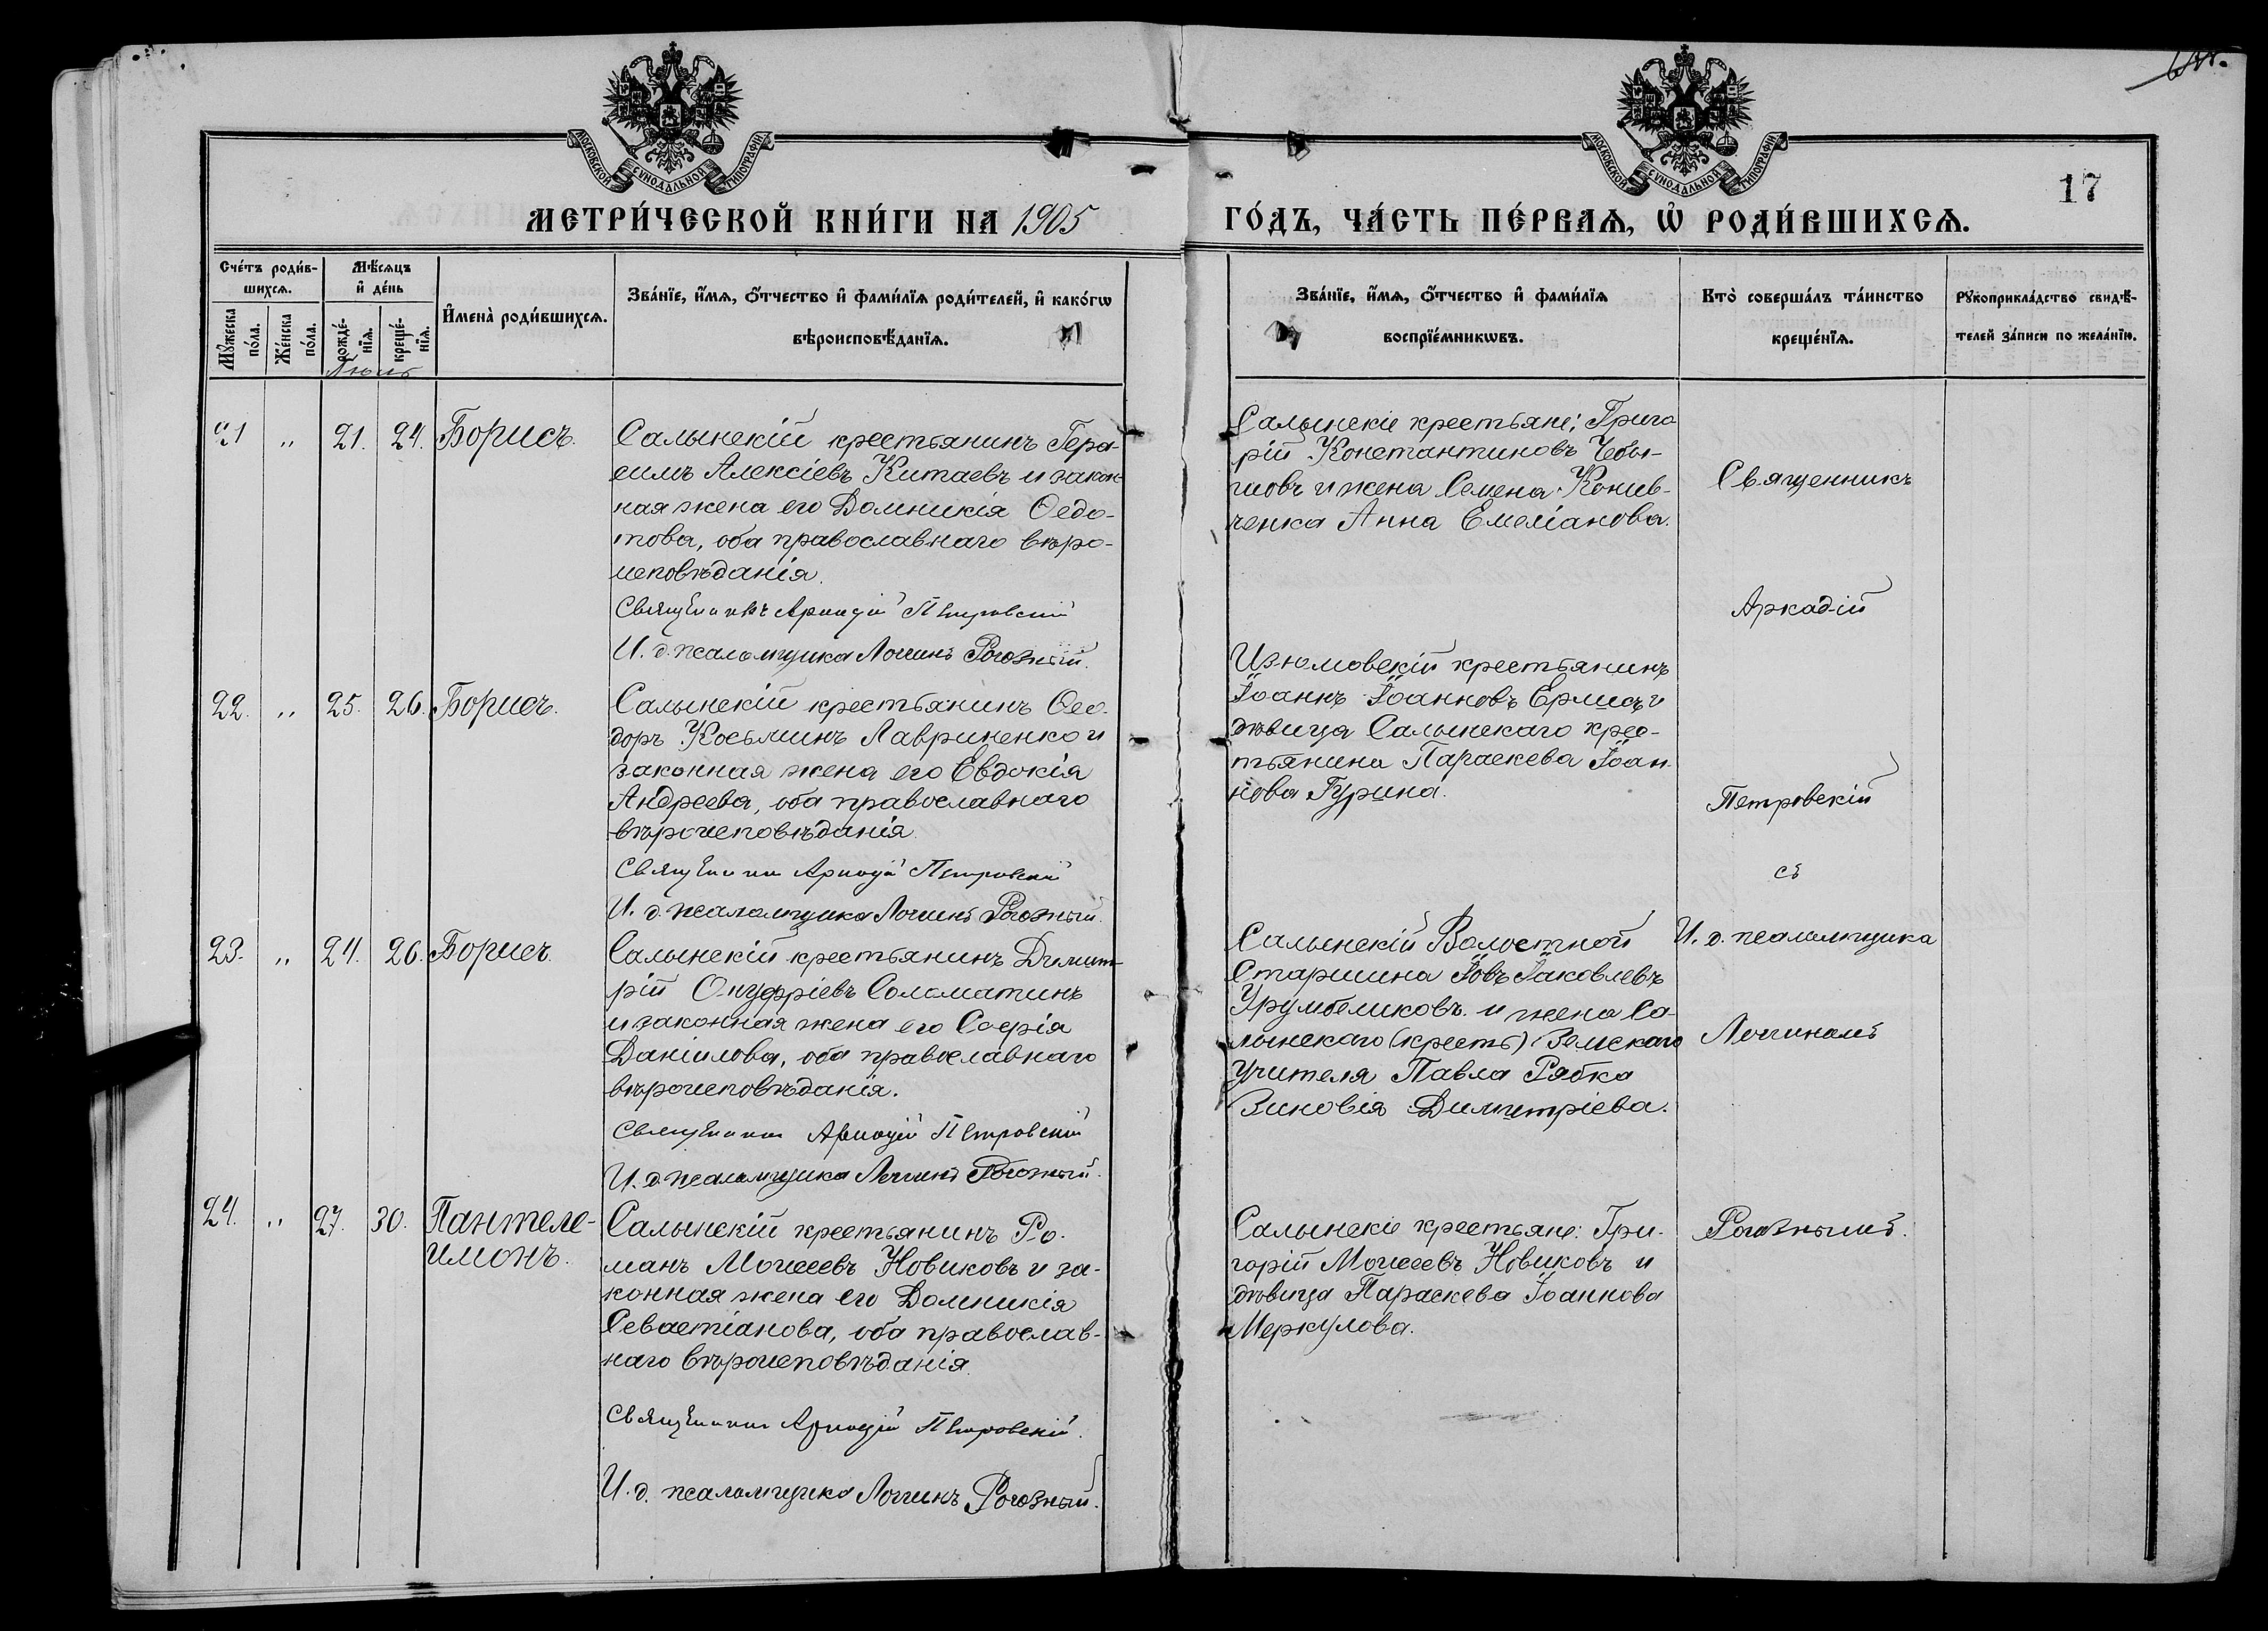 МОСКОВСКОЙ СѴНОДАЛЬНОЙ ТИПОГРАФІИ
МОСКОВСКОЙ СѴНОДАЛЬНОЙ ТИПОГРАФІИ
17
МЕТРИ́ЧЕСКОЙ КНИ́ГИ НА 1905
ГО́ДЪ, ЧА́СТЬ ПЕ́РВАѦ, Ѡ҆ РОДИ́ВШИХСѦ.
Сче́тъ роди́в-
шихсѧ.
Мѣ́сѧцъ
и҆ де́нь
И҆мена̀ роди́вшихсѧ.
Зва́нїе, и҆́мѧ, ѻ҆́тчество и҆ фами́лїѧ роди́телей, и҆ како́гѡ
вѣроисповѣ́данїѧ.
Мꙋ́жеска
по́ла.
Же́нска
по́ла.
рожде́-
нїѧ.
креще́-
нїѧ.
Зва́нїе, и҆́мѧ, ѻ҆́тчество и҆ фами́лїѧ
воспрїе́мникѡвъ.
Кто̀ соверша́лъ та́инство
креще́нїѧ.
Рꙋкоприкла́дство свидѣ́-
телей за́писи по жела́нїю.
Іюль
21 „ 21. 24. Борисъ.
Салынскій крестьянинъ Гера-
симъ Алексіевъ Китаевъ и закон-
ная жена его Домникія Ѳедо-
това, оба православнаго вѣро-
исповѣданія.
Священникъ Аркадій Петровскій
И. д. псаломщика Логинъ Рогозный.
Салынскіе крестьяне: Григо
рій Константиновъ Чебы-
и жена Семена
Анна Емеліанова.
Священникъ
Аркадій
Петровскій
съ
И. д. псаломщика
Логиномъ
Рогознымъ.
22. „ 25. 26. Борисъ.
Салынскій крестьянинъ Ѳео-
доръ Косьминъ Лавриненко и
законная жена его Евдокія
Андреева, оба православнаго
вѣроисповѣданія.
Священникъ Аркадій Петровскій
И. д. псаломщика Логинъ Рогозный.
Изюмовскій крестьянинъ
Іоаннъ Іоанновъ и
дѣвица Салынскаго крес-
тьянина Параскева Іоан
нова Гурина.
23. „ 24. 26. Борисъ.
Салынскій крестьянинъ Димит-
рій Онуфріевъ Соломатинъ
и законная жена его Софія
Даніилова, оба православнаго
вѣроисповѣданія.
Священникъ Аркадій Петровскій
И. д. псаломщика Логинъ Рогозный.
Салынскій Волостной
Старшина Іовъ Іаковлевъ
Урумбеликовъ и жена Са-
лынскаго (кресть) Земскаго
Учителя Павла Рябка
Зиновія Димитріева.
24. „ 27. 30. Пантеле-
имонъ.
Салынскій крестьянинъ Ро-
манъ Моисеевъ Новиковъ и за-
конная жена его Домникія
Севастіанова, оба православ-
наго вѣроисповѣданія.
Священникъ Аркадій Петровскій.
И. д. псаломщика Логинъ Рогозный.
Салынскіе крестьяне: Гри-
горій Моисеевъ Новиковъ и
дѣвица Параскева Іоаннова
Меркулова.